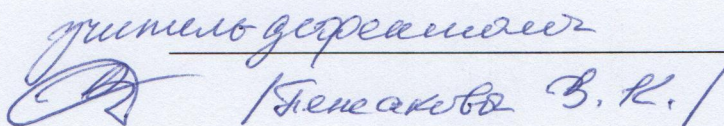 учитель дефектолог
/Пенсакова В. К./